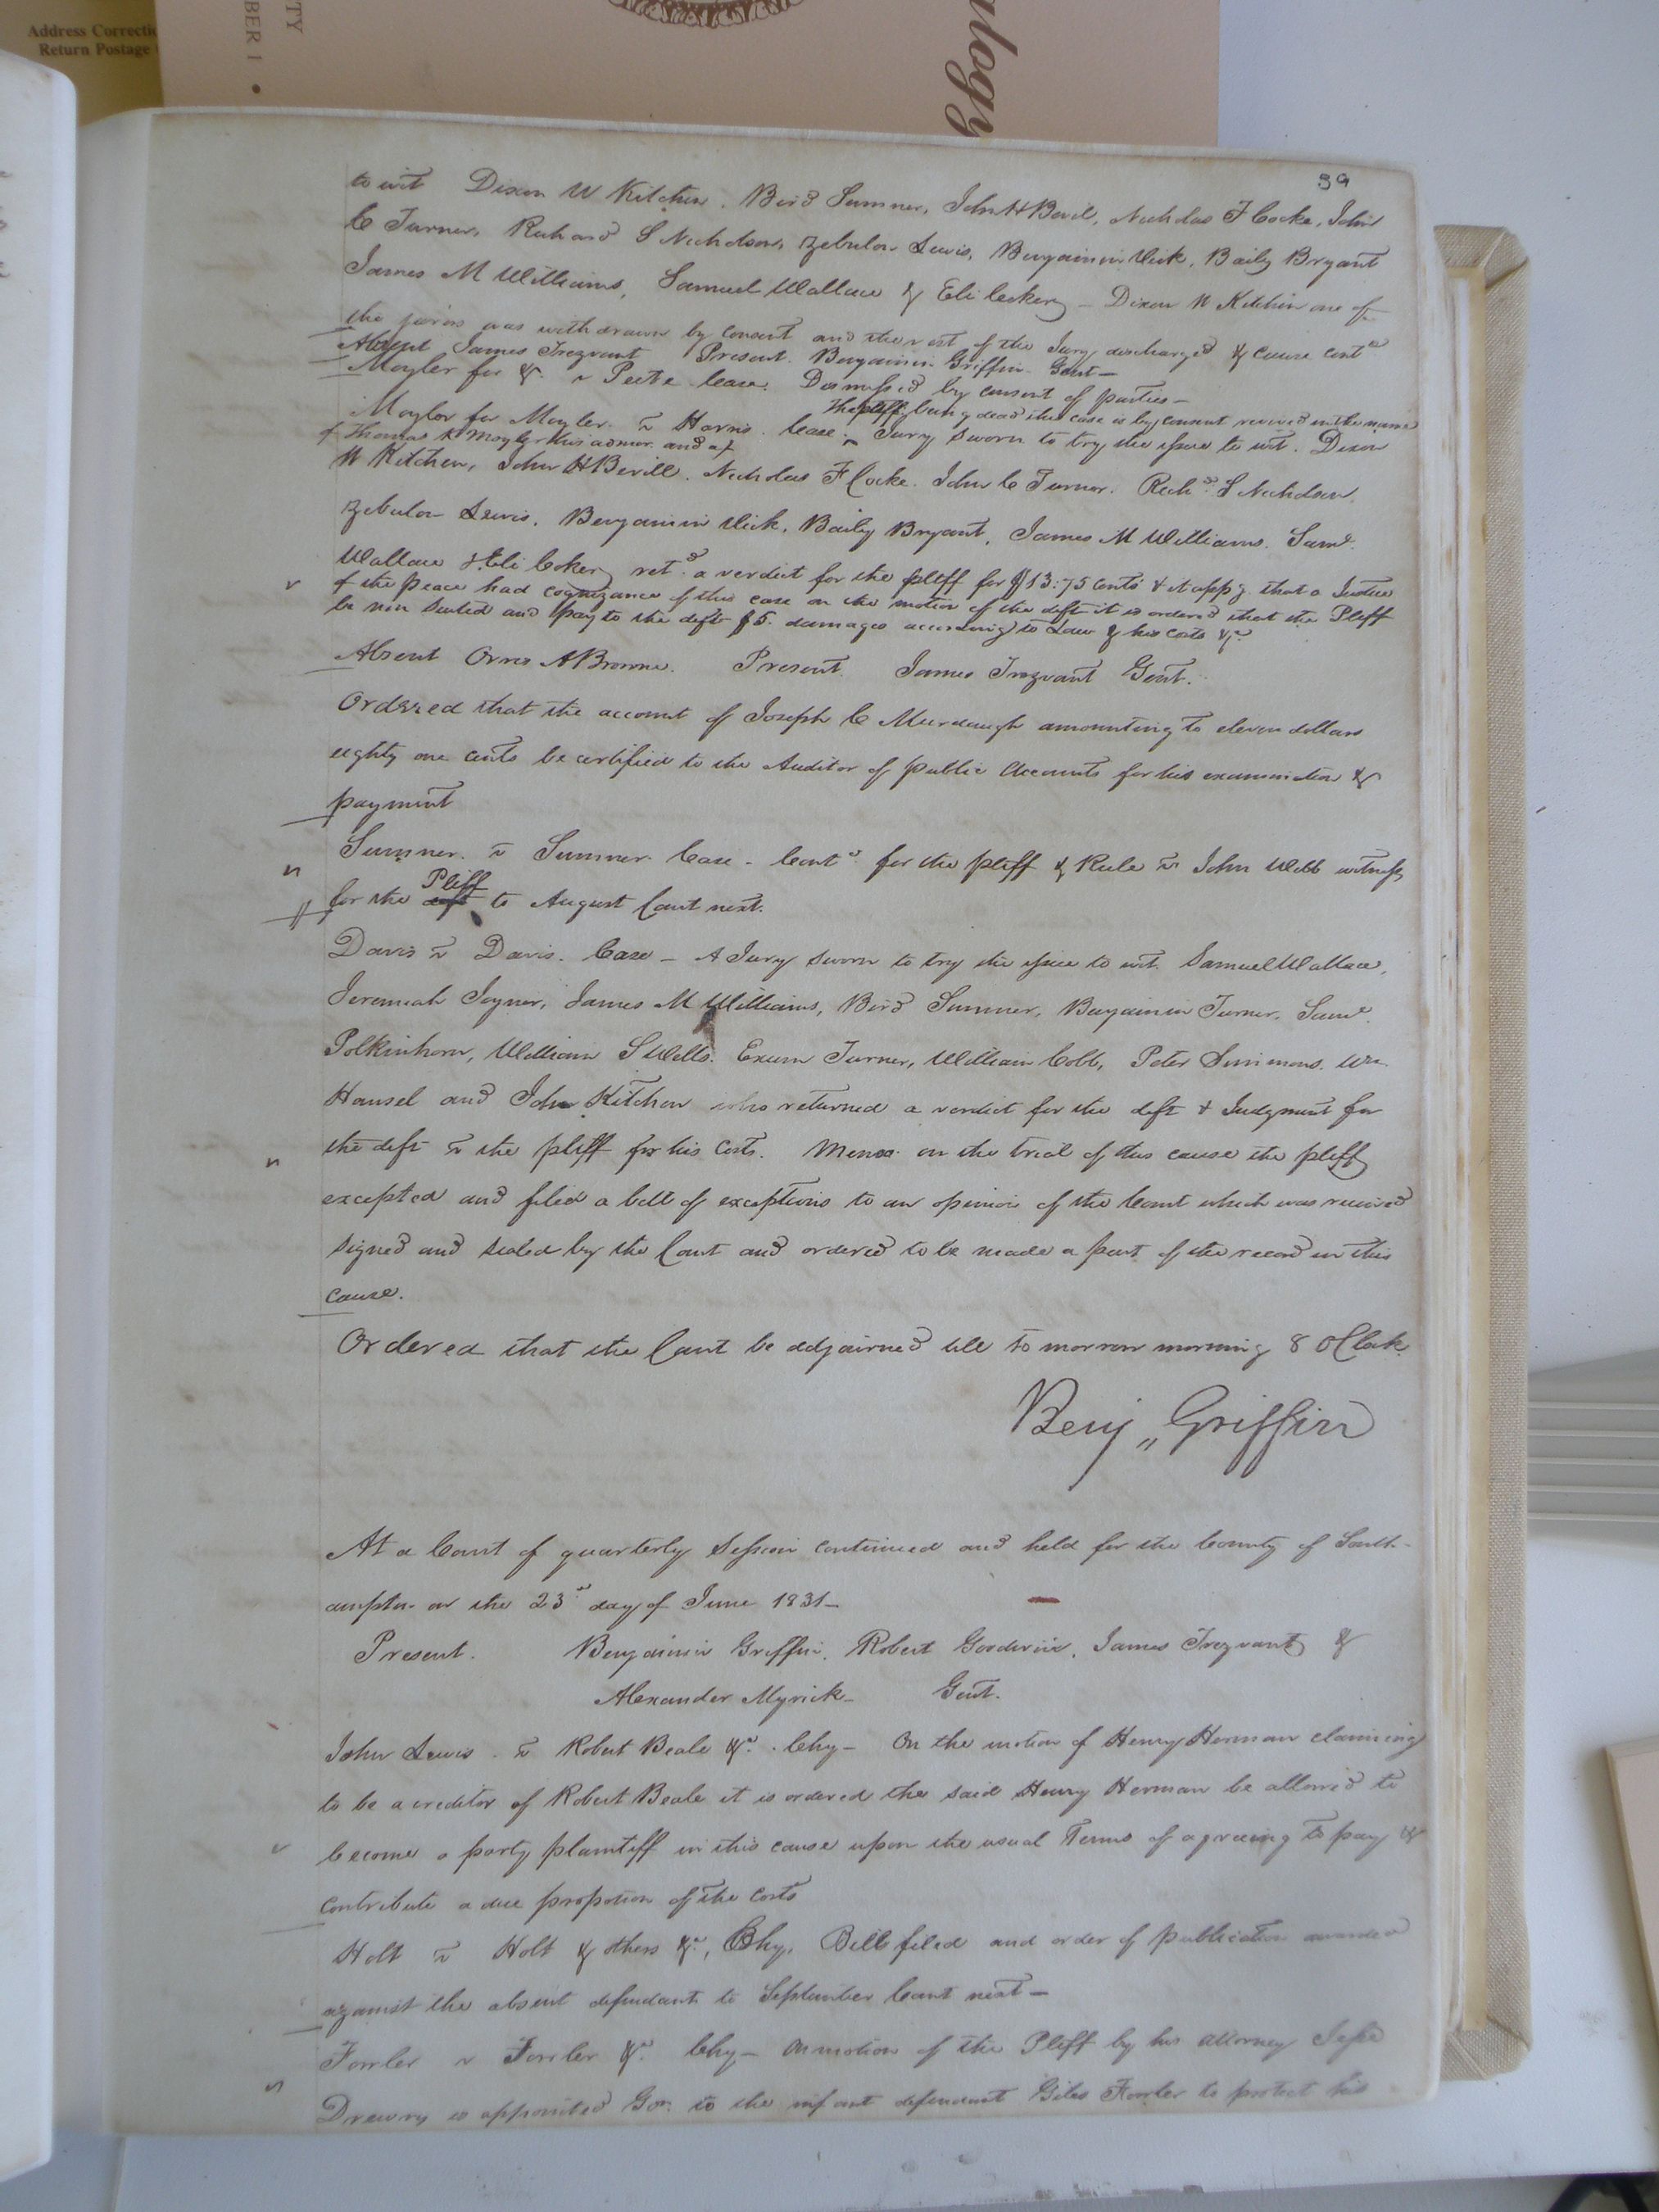 Address Correcti
Return Postage
TY
BER 1 •
logy
39
to wit Dixon W Kitchen, Bird Sumner, John H Bevil, Nicholas F Cocke, John
C Turner, Richard S Nicholson, Zebulon Lewis, Benjamin Vick, Baily Bryant
James M Williams, Samuel Wallace & Eli Coker — Dixon W Kitchin one of
the jurors was withdrawn by consent and the rest of the Jury discharged & cause contd
Absent James Trezvant Present Benjamin Griffin Gent —
Moyler for &c. v Peete Case. Dismissed by consent of parties —
The pltff being dead this case is by consent revived in the name
Moyler for Moyler v Harris. Case. ^ Jury sworn to try the issue to wit. Dixon
of Thomas R Moyler his admor. and a
W Kitchen, John H Bevill. Nicholas F Cocke. John C Turner. Richd. S Nicholson,
Zebulon Lewis, Benjamin Vick, Baily Bryant, James M Williams. Saml.
Wallace & Eli Coker, retd. a verdict for the pltff for $13:75 Cents & it appg. that a Justice
of the Peace had cognizance of this case on the motion of the deft it is ordered that the Pltff
be non suited and pay to the deft $5. damages according to Law & his costs &c.
Absent Orris A Browne. Present James Trezvant Gent.
Ordered that the account of Joseph C Murdaugh amounting to eleven dollars
eighty one cents be certified to the Auditor of public Accounts for his examination &
payment
Sumner v Sumner Case - Contd for the pltff & Rule v John Webb witness
Pltff
for the deft to August Court next.
Davis v Davis. Case — A Jury sworn to try the issue to wit Samuel Wallace,
Jeremiah Joyner, James M Williams, Bird Sumner, Benjamin Turner, Saml.
Polkinhorn, William S Wells. Exum Turner, William Cobb, Peter Simmons. Wm.
Hansel and John Kitchen who returned a verdict for the deft & Judgment for
the deft v the pltff for his Costs. Memo. on the trial of this cause the pltff
excepted and filed a bill of exceptions to an opinion of the Court which was received
signed and sealed by the Court and ordered to be made a part of the record in this
cause.
Ordered that the Court be adjourned till to morrow morning 8 OClock.
Benj „ Griffin
At a Court of quarterly Session continued and held for the County of South-
ampton on the 23d day of June 1831 —
Present. Benjamin Griffin, Robert Goodwin, James Trezvant &
Alexander Myrick — Gent.
John Lewis v Robert Beale &c. Chy — On the motion of Henry Herman claiming
to be a creditor of Robert Beale it is ordered the said Henry Herman be allowed to
become a party plaintiff in this cause upon the usual Terms of agreeing to pay &
contribute a due propotion of the costs
Holt v Holt & others &c, Chy. Bill filed and order of publication awarded
against the absent defendant to September Court next —
Fowler v Fowler &c. Chy — On motion of the Pltff by his attorney Jesse
Drewry is appointed Gdn. to the infant defendant Giles Fowler to protect his